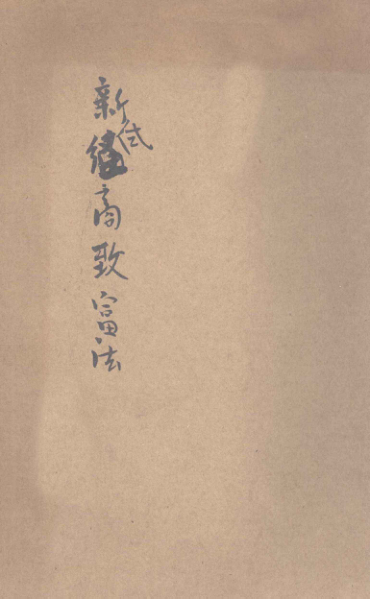 新式商致富法